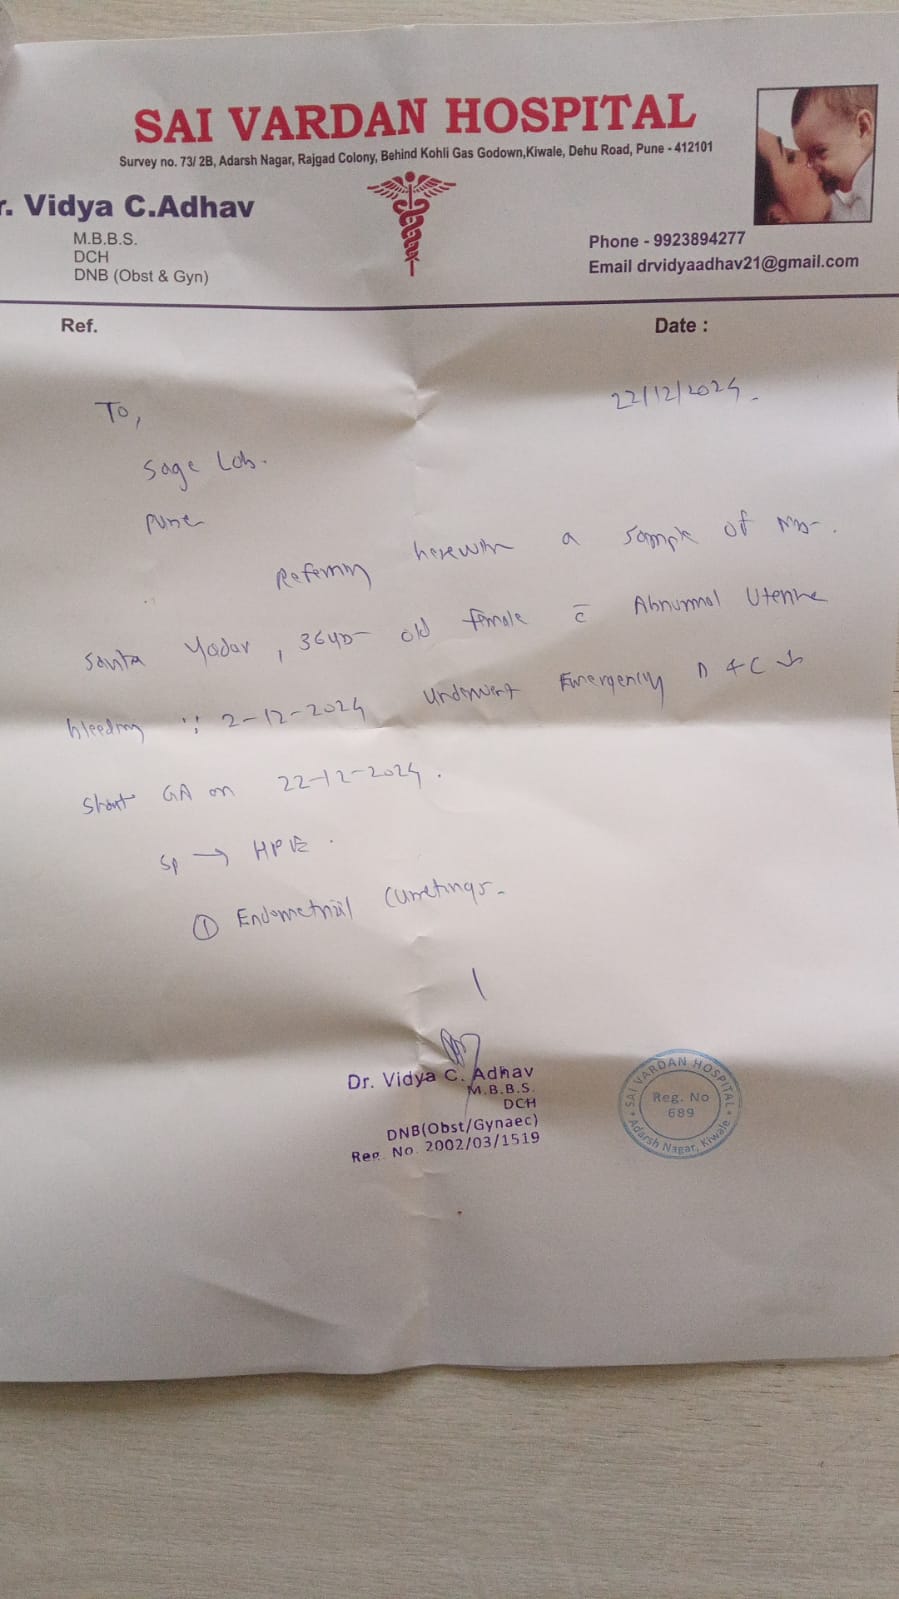 SAI VARDAN HOSPITAL
Survey no. 73/ 2B, Adarsh Nagar, Rajgad Colony, Behind Kohli Gas Godown,Kiwale, Dehu Road, Pune - 412101
r. Vidya C.Adhav
M.B.B.S.
DCH
DNB (Obst & Gyn)
Phone - 9923894277
Email drvidyaadhav21@gmail.com
Ref.
Date :
22/12/2024.
To,
Sage Lab.
Pune
Referring herewith a sample of Mrs.
Santa Yadav, 36yrs old female c̄ Abnormal Uterine
bleeding 2-12-2024 underwent Emergency D & C
short GA on 22-12-2024.
Sp → HPE.
① Endometrial Curettings-
Dr. Vidya C. Adhav
M.B.B.S.
DCH
DNB(Obst/Gynaec)
Reg. No. 2002/03/1519
SAI VARDAN HOSPITAL
Reg. No
689
Adarsh Nagar, Kiwale